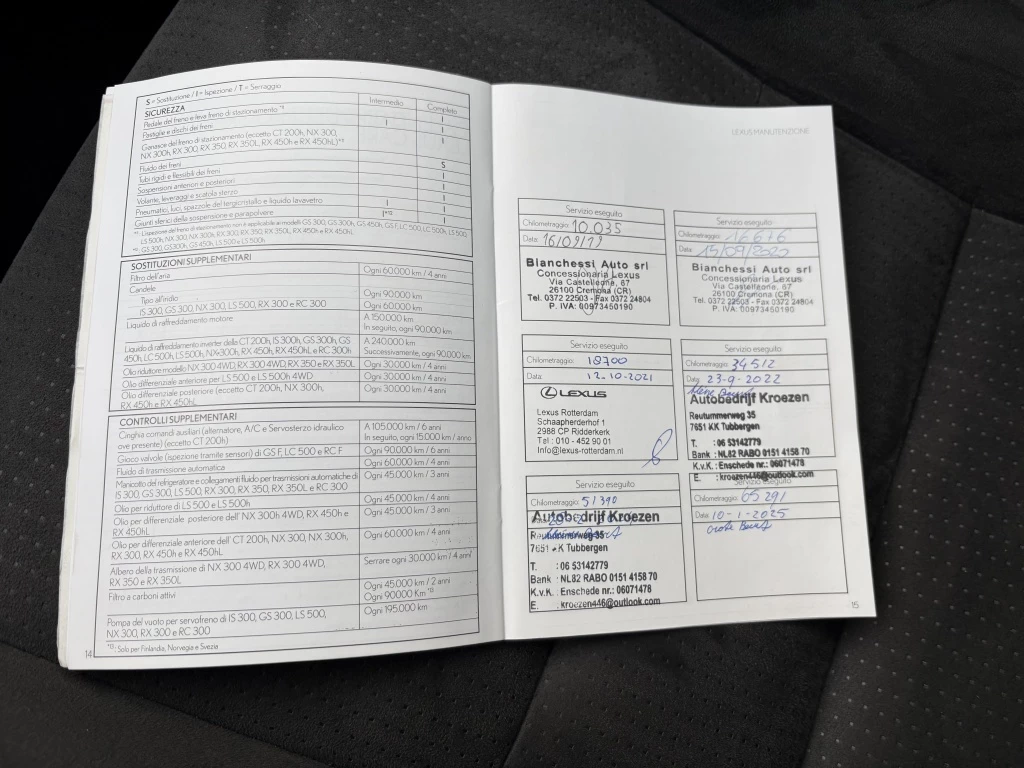 S = Sostituzione / I = Ispezione / T = Serraggio
SICUREZZA Intermedio Completo
Pedale del freno e leva freno di stazionamento *1 I
Pastiglie e dischi dei freni I I
Ganasce del freno di stazionamento (eccetto CT 200h, NX 300,
NX 300h, RX 300, RX 350, RX 350L, RX 450h e RX 450hL) I
Fluido dei freni S
Tubi rigidi e flessibili dei freni I
Sospensioni anteriori e posteriori I
Volante, leveraggi e scatola sterzo I
Pneumatici, luci, spazzole del tergicristallo e liquido lavavetro I I
Giunti sferici della sospensione e parapolvere I
SOSTITUZIONI SUPPLEMENTARI
Filtro dell'aria Ogni 60.000 km / 4 anni
Candele
Tipo all'iridio Ogni 90.000 km
IS 300, GS 300, NX 300, LS 500, RX 300 e RC 300 Ogni 60.000 km
Liquido di raffreddamento motore A 150.000 km
In seguito, ogni 90.000 km
Liquido di raffreddamento inverter della CT 200h, IS 300h, GS 300h, GS A 240.000 km
450h, LC 500h, LS 500h, NX 300h, RX 450h, RX 450hL e RC 300h Successivamente, ogni 90.000 km
Olio riduttore modello NX 300 4WD, RX 300 4WD, RX 350 e RX 350L Ogni 30.000 km / 4 anni
Olio differenziale anteriore per LS 500 e LS 500h 4WD Ogni 30.000 km / 4 anni
Olio differenziale posteriore (eccetto CT 200h, NX 300h, Ogni 30.000 km / 4 anni
RX 450h e RX 450hL)
CONTROLLI SUPPLEMENTARI
Cinghia comandi ausiliari (alternatore, A/C e Servosterzo idraulico A 105.000 km / 6 anni
ove presente) (eccetto CT 200h) In seguito, ogni 15.000 km / anno
Gioco valvole (ispezione tramite sensori) di GS F, LC 500 e RC F Ogni 90.000 km / 6 anni
Fluido di trasmissione automatica Ogni 60.000 km / 4 anni
Manicotto del refrigeratore e collegamenti fluido per trasmissioni automatiche di Ogni 45.000 km / 3 anni
IS 300, GS 300, LS 500, NX 300, RX 300, RX 350, RX 350L e RC 300
Olio per riduttore di LS 500 e LS 500h Ogni 45.000 km / 4 anni
Olio per differenziale posteriore dell' NX 300h 4WD, RX 450h e Ogni 45.000 km / 3 anni
RX 450hL
Olio per differenziale anteriore dell' CT 200h, NX 300, NX 300h, Ogni 60.000 km / 4 anni
RX 300, RX 450h e RX 450hL
Albero della trasmissione di NX 300 4WD, RX 300 4WD, Serrare ogni 30.000 km / 4 anni
RX 350 e RX 350L
Filtro a carboni attivi Ogni 45.000 km / 2 anni
Ogni 90000 Km *3
Pompa del vuoto per servofreno di IS 300, GS 300, LS 500, Ogni 195.000 km
NX 300, RX 300 e RC 300
*3: Solo per Finlandia, Norvegia e Svezia
14
LEXUS MANUTENZIONE
Servizio eseguito
Chilometraggio: 10.035
Data: 16/09/19
Bianchessi Auto srl
Concessionaria Lexus
Via Castelleone, 67
26100 Cremona (CR)
Tel. 0372 22503 - Fax 0372 24804
P. IVA: 00973450190
Servizio eseguito
Chilometraggio: 16616
Data: 15/09/2020
Bianchessi Auto srl
Concessionaria Lexus
Via Castelleone, 67
26100 Cremona (CR)
Tel. 0372 22503 - Fax 0372 24804
P. IVA: 00973450190
Servizio eseguito
Chilometraggio: 18700
Data: 12-10-2021
LEXUS
Lexus Rotterdam
Schaapherderhof 1
2988 CP Ridderkerk
Tel : 010 - 452 90 01
Info@lexus-rotterdam.nl
Servizio eseguito
Chilometraggio: 34512
Data: 23-9-2022
Autobedrijf Kroezen
Reutummerweg 35
7651 KK Tubbergen
T. : 06 53142779
Bank : NL82 RABO 0151 4158 70
K.v.K. : Enschede nr.: 06071478
E. : kroezen446@outlook.com
Servizio eseguito
Chilometraggio: 51390
Autobedrijf Kroezen
Reutummerweg 35
7651 KK Tubbergen
T. : 06 53142779
Bank : NL82 RABO 0151 4158 70
K.v.K. : Enschede nr.: 06071478
E. : kroezen446@outlook.com
Servizio eseguito
Chilometraggio: 65291
Data: 10-1-2025
Grote Beurt
15